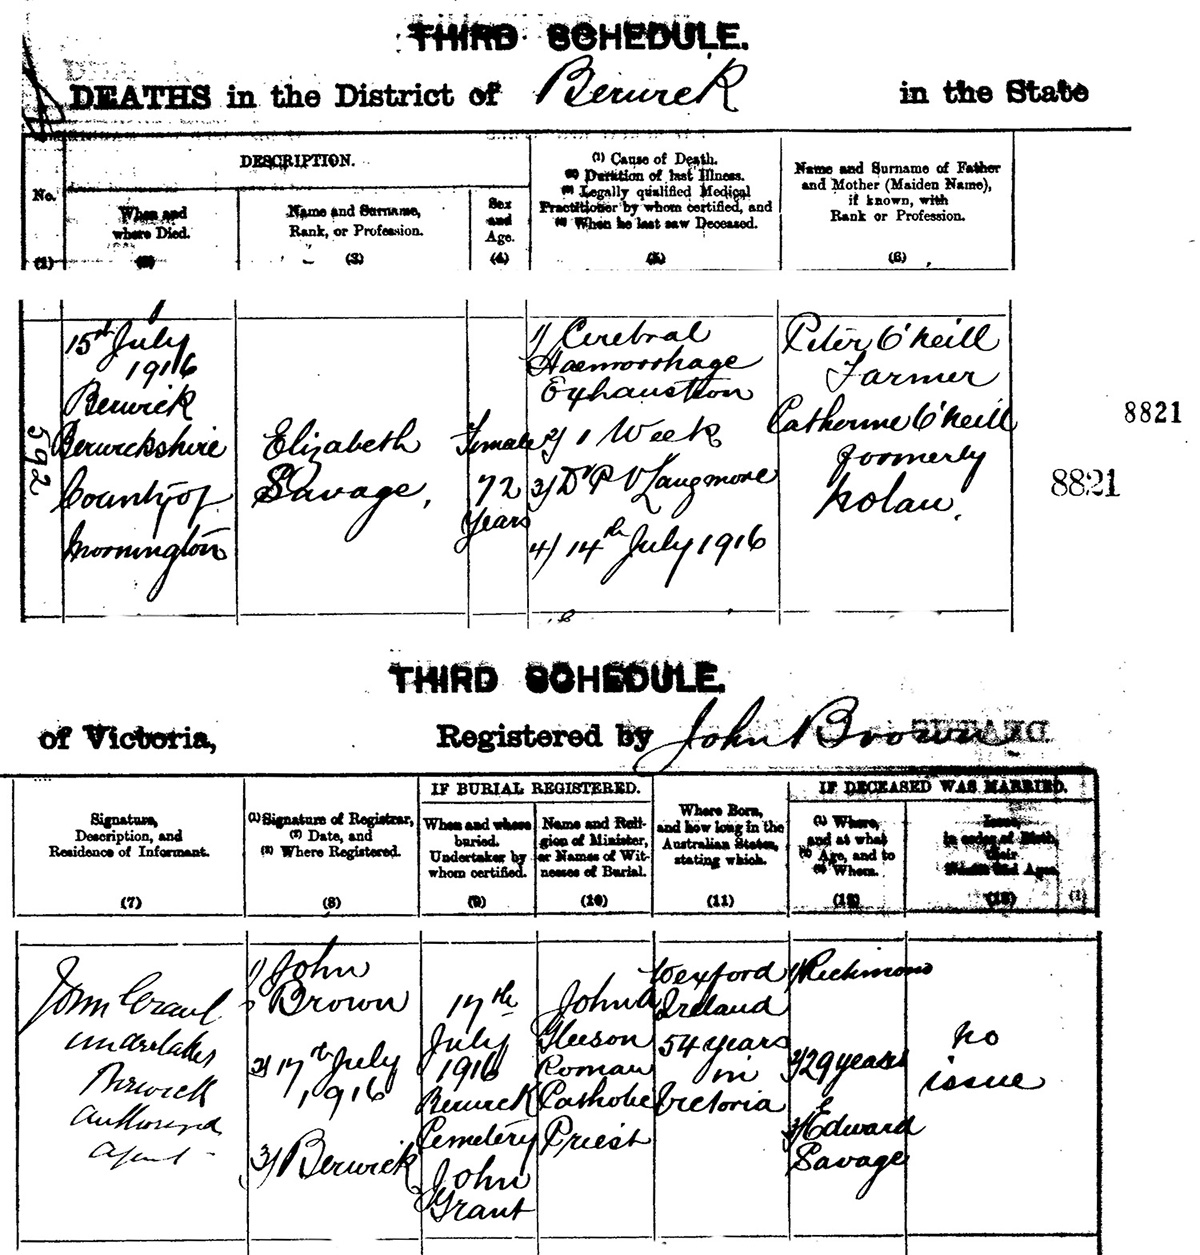 THIRD SCHEDULE.
DEATHS in the District of Berwick in the State
No.
(1)
DESCRIPTION.
When and
where Died.
(2)
Name and Surname,
Rank, or Profession.
(3)
Sex
and
Age.
(4)
(1) Cause of Death.
(2) Duration of last Illness.
(3) Legally qualified Medical
Practitioner by whom certified, and
(4) When he last saw Deceased.
(5)
Name and Surname of Father
and Mother (Maiden Name),
if known, with
Rank or Profession.
(6)
592
15th July
1916
Berwick
Berwickshire
County of
Mornington
Elizabeth
Savage,
Female
72
Years
1) Cerebral
Haemorrhage
Exhaustion
2) 1 Week
3) Dr P V Langmore
4) 14th July 1916
Peter O'Neill
Farmer
Catherine O'Neill
formerly
Nolan.
8821
8821
THIRD SCHEDULE.
of Victoria, Registered by John Brown
DEATHS
Signature,
Description, and
Residence of Informant.
(7)
(1) Signature of Registrar,
(2) Date, and
(3) Where Registered.
(8)
IF BURIAL REGISTERED.
When and where
buried.
Undertaker by
whom certified.
(9)
Name and Reli-
gion of Minister,
or Names of Wit-
nesses of Burial.
(10)
Where Born,
and how long in the
Australian States,
stating which.
(11)
IF DECEASED WAS MARRIED.
(1) Where,
and at what
(2) Age, and to
(3) Whom.
(12)
Issue,
in order of Birth,
their
Names and Ages.
(13)
(1)
John Grant
undertaker
Berwick
authorised
agent
1) John
Brown
2) 17th July
1916
3) Berwick
17th
July
1916
Berwick
Cemetery
John
Grant
John
Gleeson
Roman
Catholic
Priest
Wexford
Ireland
54 years
in
Victoria
1) Richmond
2) 29 years
3) Edward
Savage
No
issue